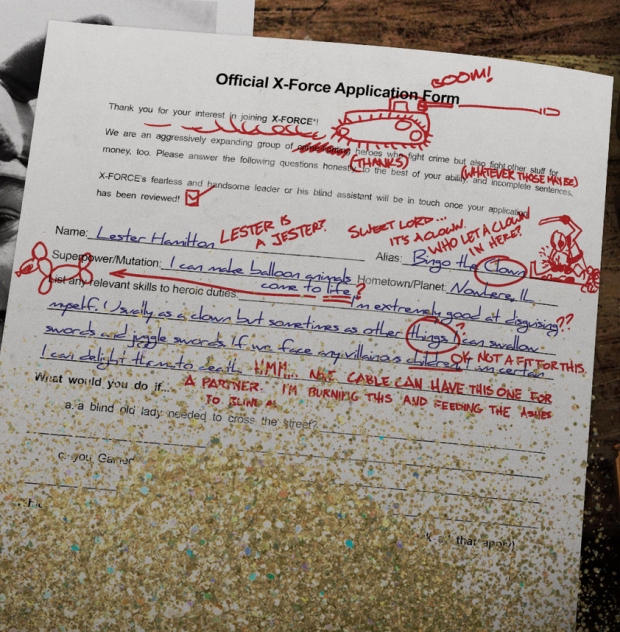 BOOM!
Official X-Force Application Form
Thank you for your interest in joining X-FORCE*!
We are an aggressively expanding group of heroes who fight crime but also fight other stuff for
(THANKS)
(WHATEVER THOSE MAY BE)
money, too. Please answer the following questions honestly, to the best of your ability, and incomplete sentences,
X-FORCE's fearless and handsome leader or his blind assistant will be in touch once your application
has been reviewed!
LESTER IS
A JESTER?
SWEET LORD...
IT'S A CLOWN.
WHO LET A CLOWN
IN HERE?
Name: Lester Hamilton
Alias: Bingo the Clown
Superpower/Mutation: I can make balloon animals
come to life?
Hometown/Planet: Nowhere, IL
List any relevant skills to heroic duties: I'm extremely good at disguising??
myself. Usually as a clown but sometimes as other things.? I can swallow
swords and juggle swords. If we face any villainous children I'm certain
OK NOT A FIT FOR THIS.
I can delight them to death.
HMM... NAT CABLE CAN HAVE THIS ONE FOR
A PARTNER. I'M BURNING THIS AND FEEDING THE ASHES
TO BLIND AL
What would you do if...
a. a blind old lady needed to cross the street?
c. you,
that apply)